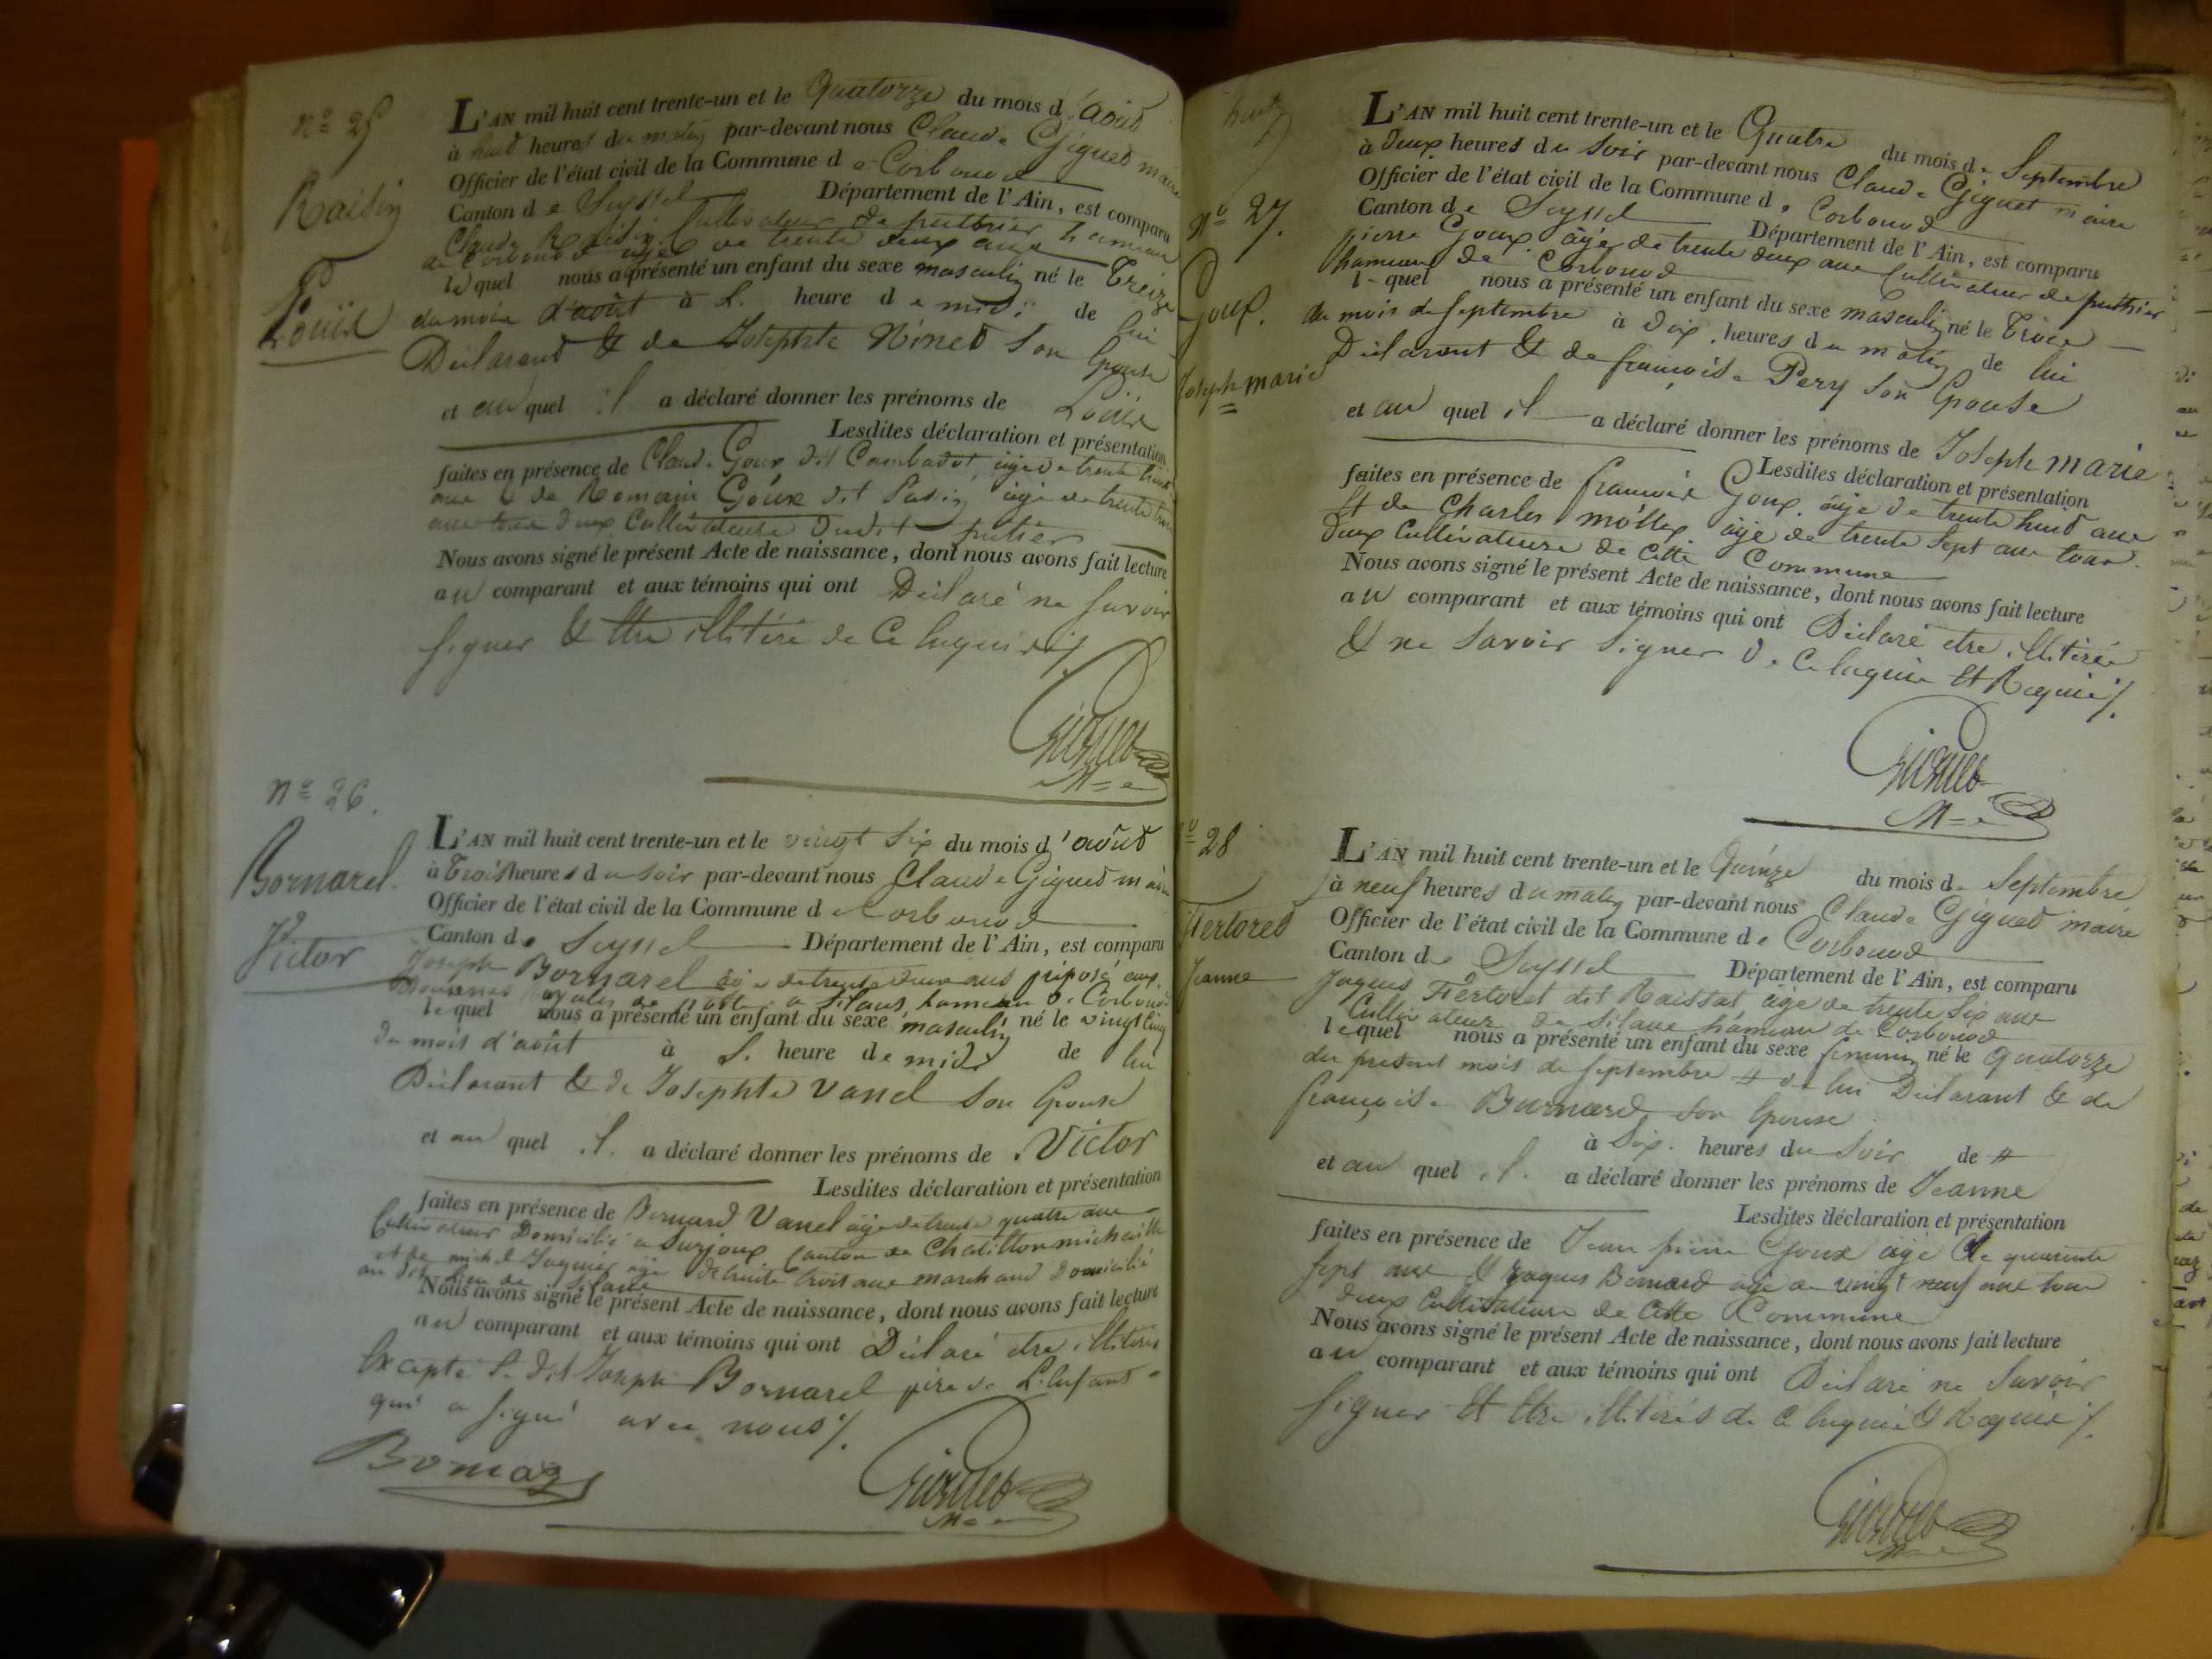 nº 25
Raisin
Louis
L'AN mil huit cent trente-un et le Quatorze du mois d'août
à huit heures du matin par-devant nous Claude Giguet maire
Officier de l'état civil de la Commune de Corbonod
Canton de Seyssel Département de l'Ain, est comparu
Claude Raisin Cultivateur de puthier hameau
de Corbonod âgé de trente deux ans
lequel nous a présenté un enfant du sexe masculin né le Treize
du mois d'août à 1. heure de midi de lui
Déclarant & de Josephte Ninet son épouse
et auquel il a déclaré donner les prénoms de Louis
Lesdites déclaration et présentation
faites en présence de Claude Goux dit Cambadot âgé de trente huit
ans & de Romain Goux dit Passin âgé de trente trois
ans tous deux Cultivateurs dudit putier
Nous avons signé le présent Acte de naissance, dont nous avons fait lecture
au comparant et aux témoins qui ont Déclaré ne savoir
signer & être illitéré de ce Requis ./.
Giguet
M=e
nº 26.
Bornarel.
Victor
L'AN mil huit cent trente-un et le vingt six du mois d'août
à Trois heures du soir par-devant nous Claude Giguet maire
Officier de l'état civil de la Commune de Corbonod
Canton de Seyssel Département de l'Ain, est comparu
Joseph Bornarel âgé de trente deux ans préposé aux
Douanes Royales de poste a Silans hameau de Corbonod
lequel nous a présenté un enfant du sexe masculin né le vingt cinq
du mois d'août à 1. heure de midi de lui
Déclarant & de Josephte Vanel son épouse
et auquel il a déclaré donner les prénoms de Victor
Lesdites déclaration et présentation
faites en présence de Bernard Vanel âgé de trente quatre ans
Cultivateur Domicilié a Surjoux canton de Chatillon michaille
et de michel Jaquier âgé de trente trois ans marchand Domicilié
au dit lieu de Silans
Nous avons signé le présent Acte de naissance, dont nous avons fait lecture
au comparant et aux témoins qui ont Déclaré être illitérés
Excepté le dit Joseph Bornarel père de L'enfant
qui a signé avec nous ./.
Giguet
M=e
nº 27.
Goux.
Joseph marie
L'AN mil huit cent trente-un et le Quatre du mois de Septembre
à deux heures du soir par-devant nous Claude Giguet maire
Officier de l'état civil de la Commune de Corbonod
Canton de Seyssel Département de l'Ain, est comparu
pierre Goux âgé de trente deux ans Cultivateur de puthier
hameau de Corbonod
lequel nous a présenté un enfant du sexe masculin né le Trois
du mois de Septembre à dix heures du matin de lui
Déclarant & de françoise Pery son épouse
et auquel il a déclaré donner les prénoms de Joseph marie
Lesdites déclaration et présentation
faites en présence de françois Goux âgé de trente huit ans
Et de Charles mollex âgé de trente sept ans tous
deux Cultivateurs de Cette Commune
Nous avons signé le présent Acte de naissance, dont nous avons fait lecture
au comparant et aux témoins qui ont Déclaré être illitérés
& ne savoir signer de ce Et Requis ./.
Giguet
M=e
nº 28
Fertoret
Jeanne
L'AN mil huit cent trente-un et le Quinze du mois de Septembre
à neuf heures du matin par-devant nous Claude Giguet maire
Officier de l'état civil de la Commune de Corbonod
Canton de Seyssel Département de l'Ain, est comparu
Jaques Fertoret dit Raissat âgé de trente six ans
Cultivateur de Silans hameau de Corbonod
lequel nous a présenté un enfant du sexe féminin né le quatorze
du présent mois de Septembre # de lui Déclarant & de
françoise Burnard son épouse
à Six. heures du Soir de #
et auquel il a déclaré donner les prénoms de Jeanne
Lesdites déclaration et présentation
faites en présence de Jean pierre Goux âgé de quarante
sept ans & Jaques Bernard âgé de vingt neuf ans tous
deux Cultivateurs de Cette Commune
Nous avons signé le présent Acte de naissance, dont nous avons fait lecture
au comparant et aux témoins qui ont Déclaré ne Savoir
signer Et être illitérés de ce & Requis ./.
Giguet